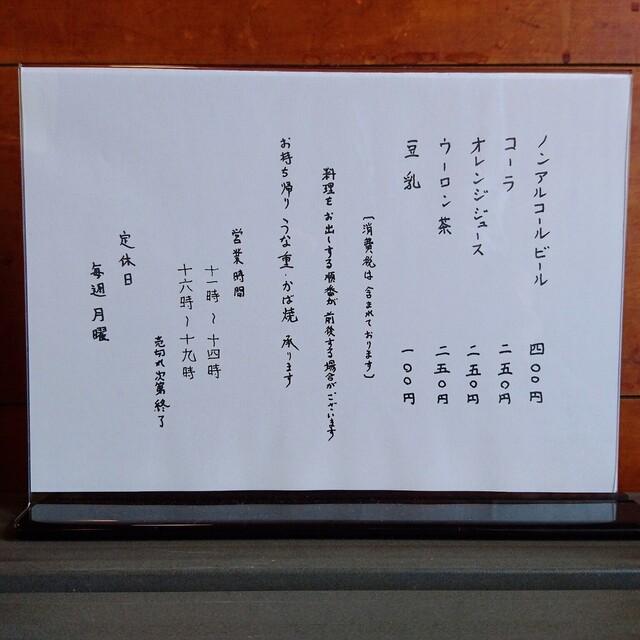 ノンアルコールビール 四〇〇円
コーラ 二五〇円
オレンジジュース 二五〇円
ウーロン茶 二五〇円
豆乳 一〇〇円
〔消費税は含まれております〕
料理をお出しする順番が前後する場合がございます
お持ち帰り うな重・かば焼 承ります
営業時間
十一時〜十四時
十六時〜十九時
売切れ次第終了
定休日
毎週月曜